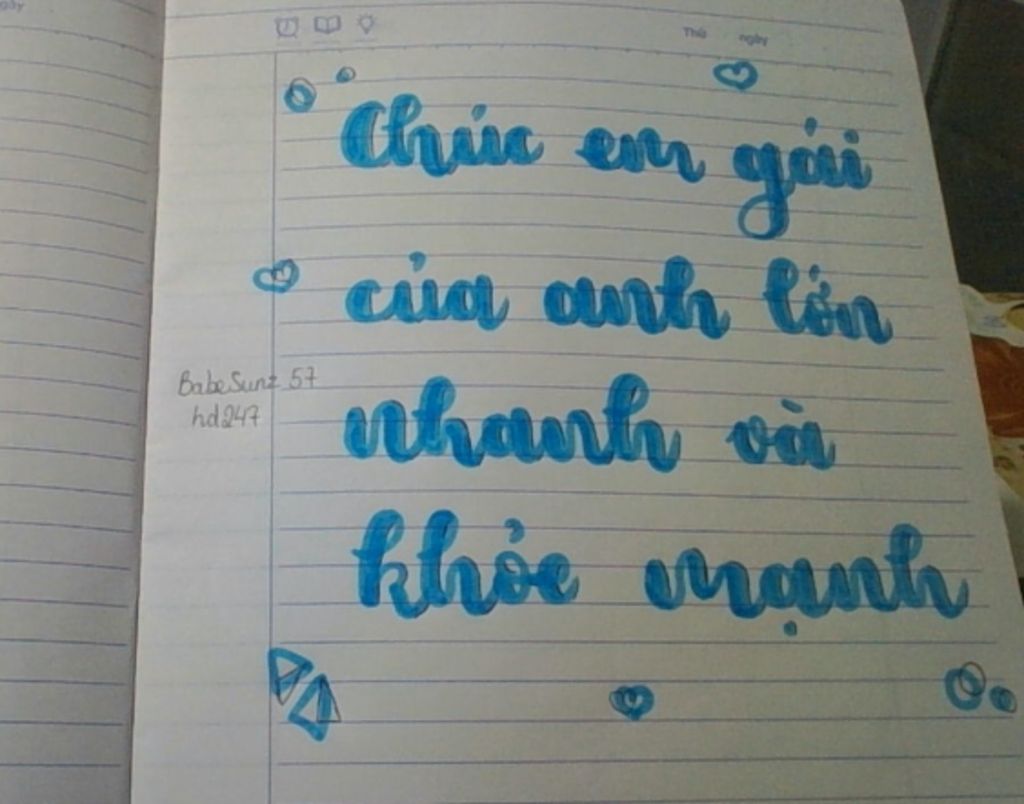 Thứ ngày
Chúc em gái
của anh lớn
BabeSunz_57
hd247
nhanh và
khỏe mạnh